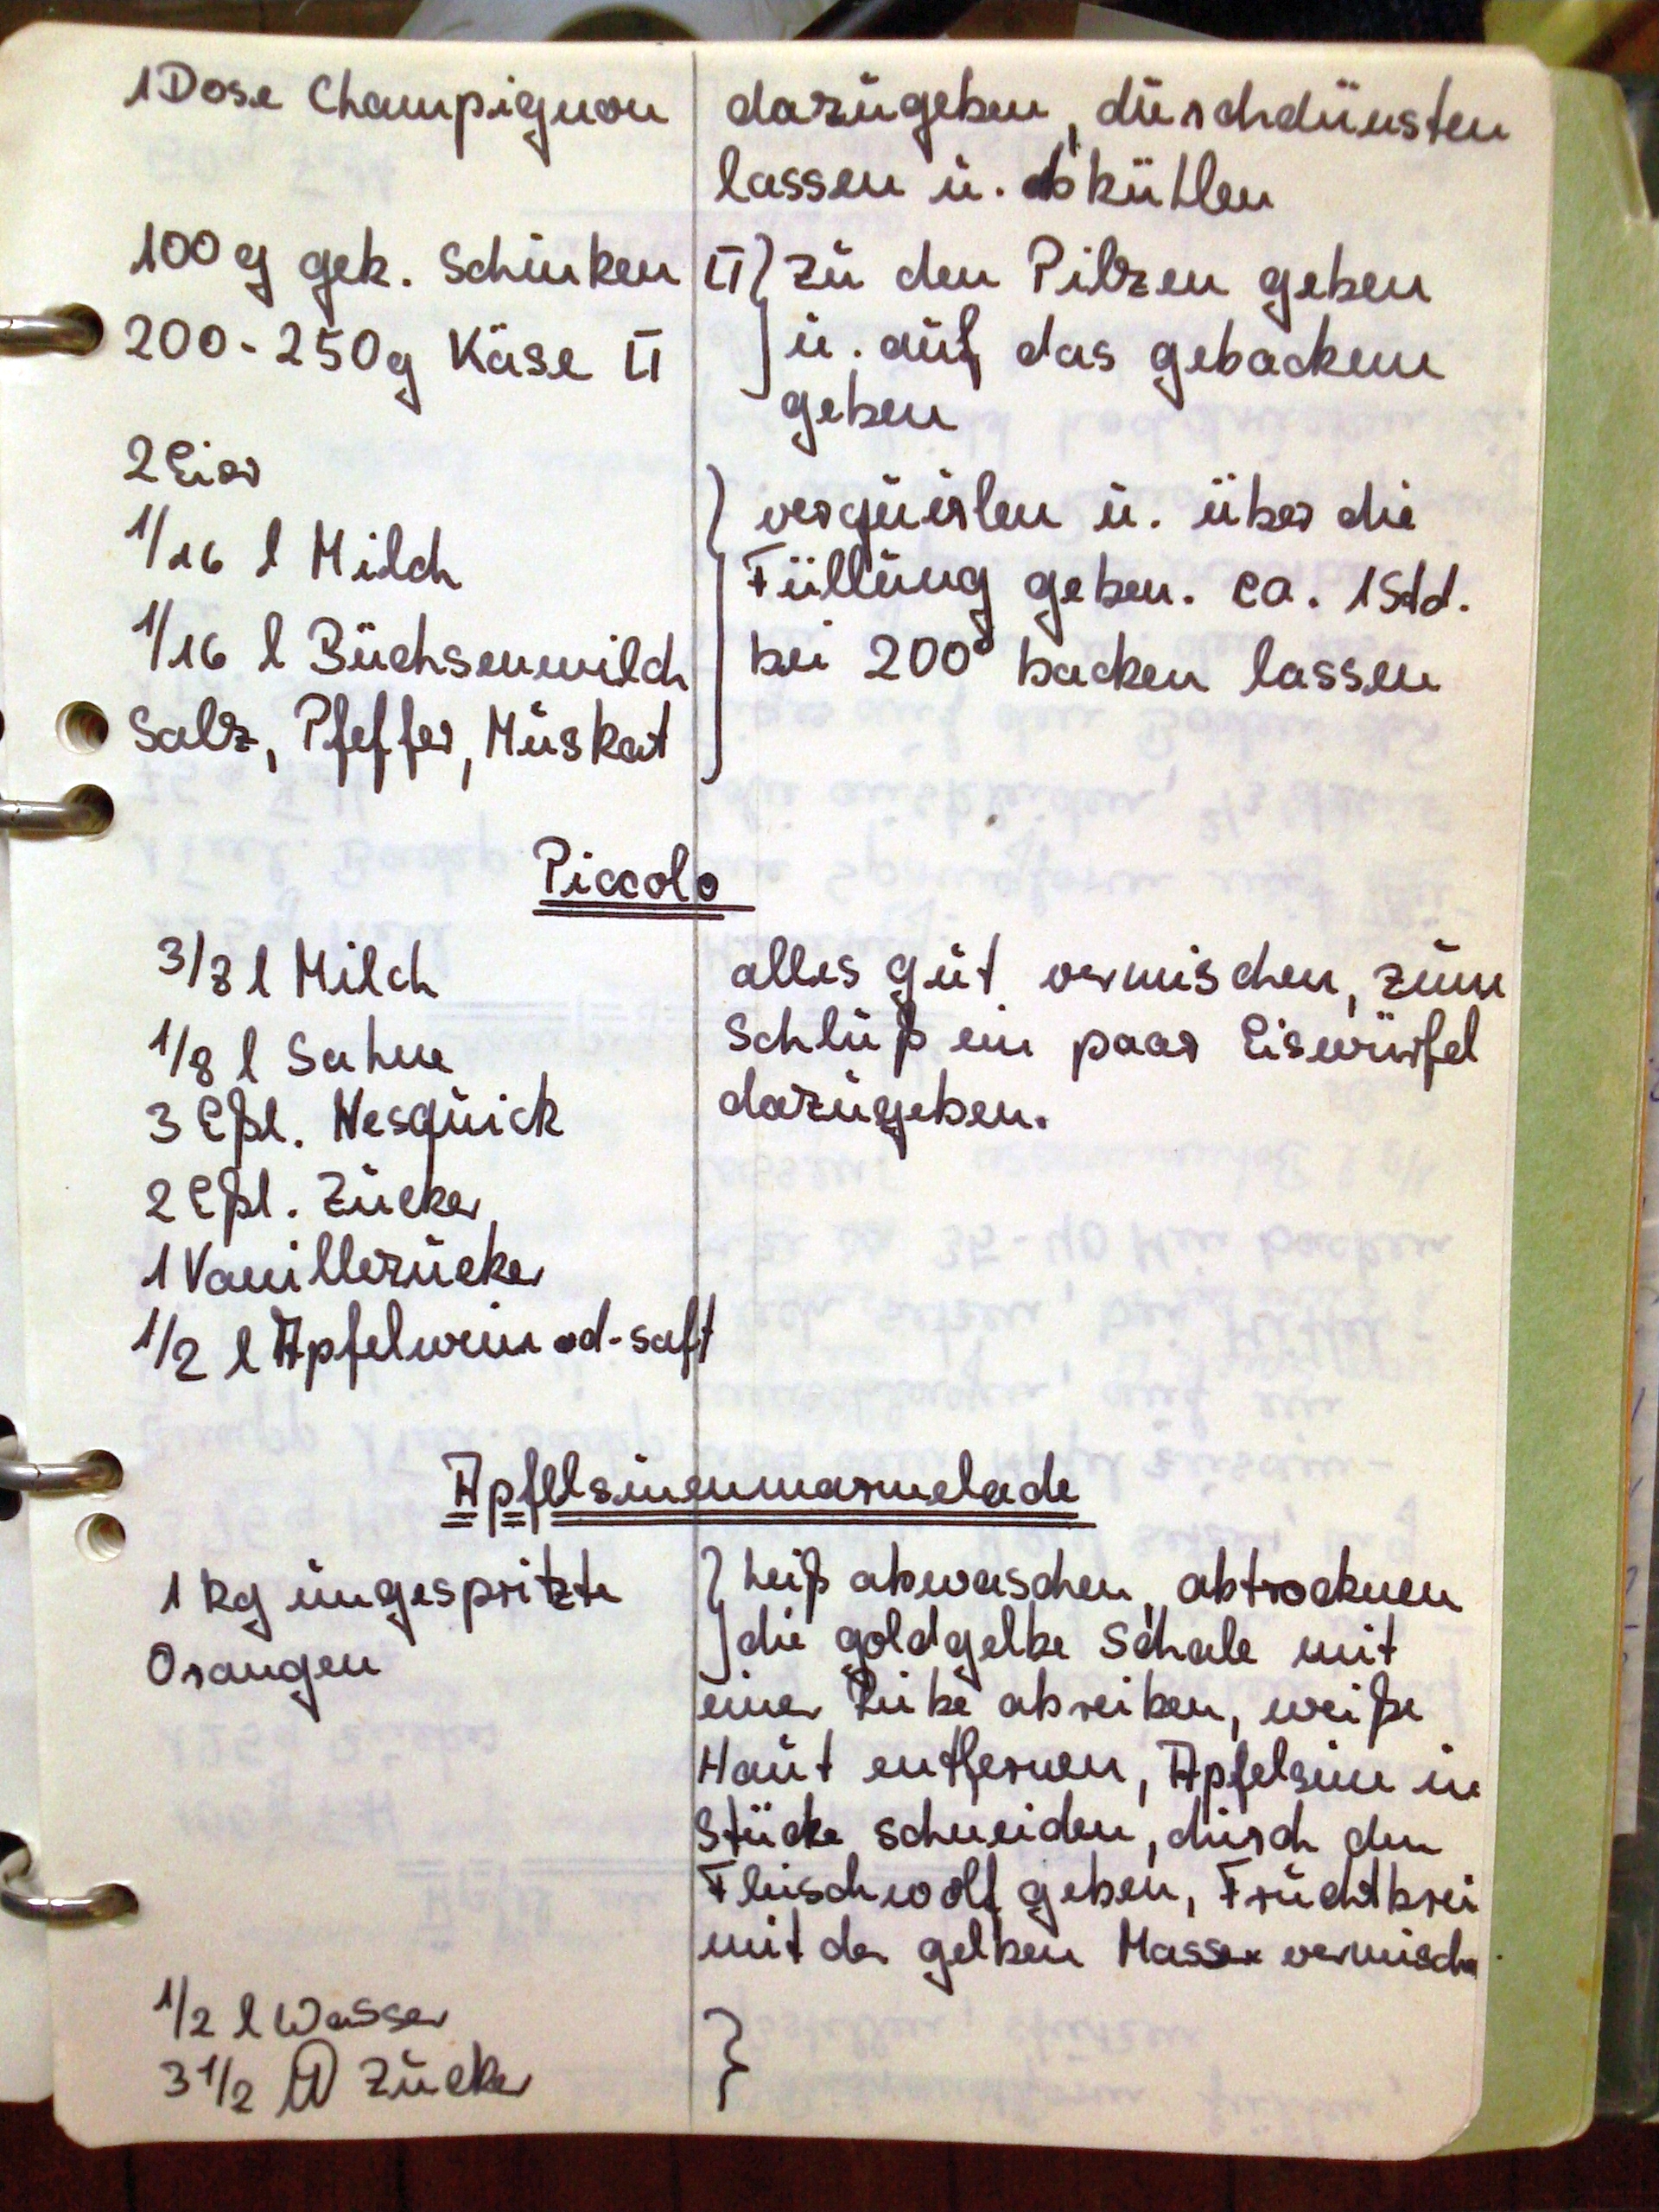 1 Dose Champignon
dazugeben, durchdünsten
lassen u. abkühlen
100 g gek. Schinken
zu den Pilzen geben
200-250g Käse
u. auf das gebackene
geben
2 Eier
1/16 l Milch
1/16 l Büchsenmilch
Salz, Pfeffer, Muskat
verquirlen u. über die
Füllung geben. ca. 1 Std.
bei 200° backen lassen
Piccolo
3/8 l Milch
1/8 l Sahne
3 Eßl. Nesquick
2 Eßl. Zucker
1 Vanillezucker
1/2 l Apfelwein od-saft
alles gut vermischen, zum
Schluß ein paar Eiswürfel
dazugeben.
Apfelsinenmarmelade
1 kg ungespritzte
Orangen
heiß abwaschen, abtrocknen
die goldgelbe Schale mit
einer Reibe abreiben, weiße
Haut entfernen, Apfelsine in
Stücke schneiden, durch den
Fleischwolf geben, Fruchtbrei
mit der gelben Masse vermische
1/2 l Wasser
3 1/2 Zucker